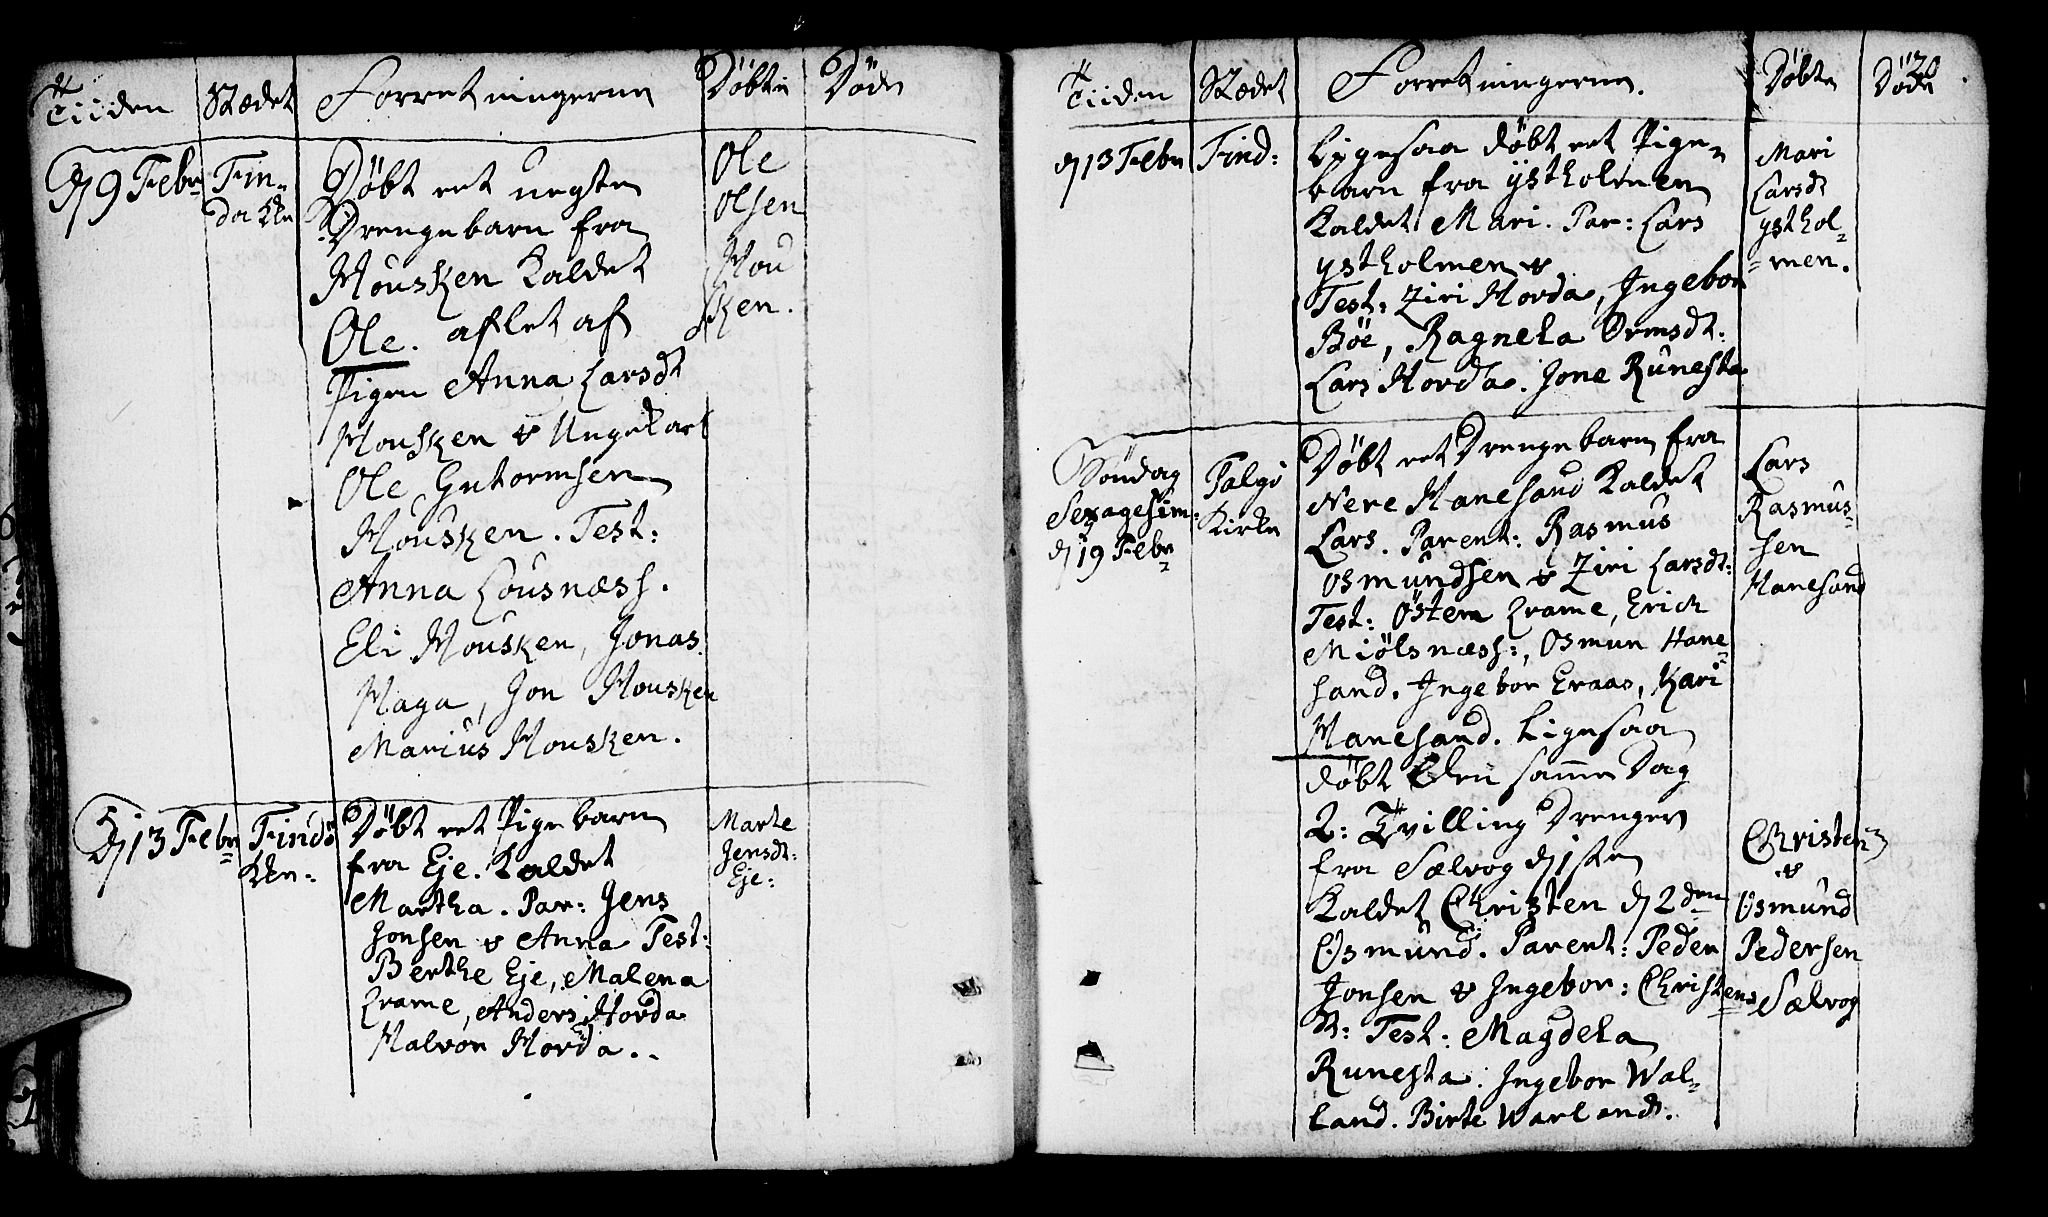 Tiiden Stædet Forretningerne Døbte Døde
d 9 Febr Fin-
da Kke
Døbt eet uegte
Drengebarn fra
Housken Kaldet
Ole. aflet af
Pigen Anna Larsdt
Housken & Ungekarl
Ole Gutormsen
Housken. Test:
Anna Lousnæss.
Eli Housken, Jonas
Haga, Jon Housken
Marius Housken.
Ole
Olsen
Hou
sken.
d 13 Febr Findö
Kke:
Døbt eet Pigebarn
fra Eje. Kaldet
Martha. Par: Jens
Jonsen & Anna Test:
Berthe Eje, Malena
Krame, Anders Horda
Halvor Horda.
Marte
Jensdt:
Eje:
Tiiden Stædet Forretningerne. Døbte Døde
20
d 13 Febr Find:
Ligesaa døbt eet Pige-
barn fra ystholmen
Kaldet Mari. Par: Lars
ystholmen &
Test: Ziri Horda, Ingebor
Böe, Ragnela Ormsdt:
Lars Horda. Jone Runesta
Mari
Larsdt
ysthol-
men.
Söndag
Sexagesim:
d 19 Febr
Talgö
Kirke
Døbt eet Drengebarn fra
Nere Hanesand Kaldet
Lars. Parent: Rasmus
Osmundsen & Ziri Larsdt:
Test: Östen Krame, Erick
Miölsnæss:, Osmun Hane-
sand. Ingebor Eraas, Kari
Hanesand. Ligesaa
døbt samme Dag
2: Tvilling Drenger
fra Sælvog d 1ste
Kaldet Christen d 2den
Osmund. Parent: Peder
Jonsen & Ingebor: Christens
D: Test: Magdela
Runesta. Ingebor Wal-
land. Birte Warland.
Lars
Rasmus-
sen
Hanesand
Christen
&
Osmund
Pedersen
Sælvog